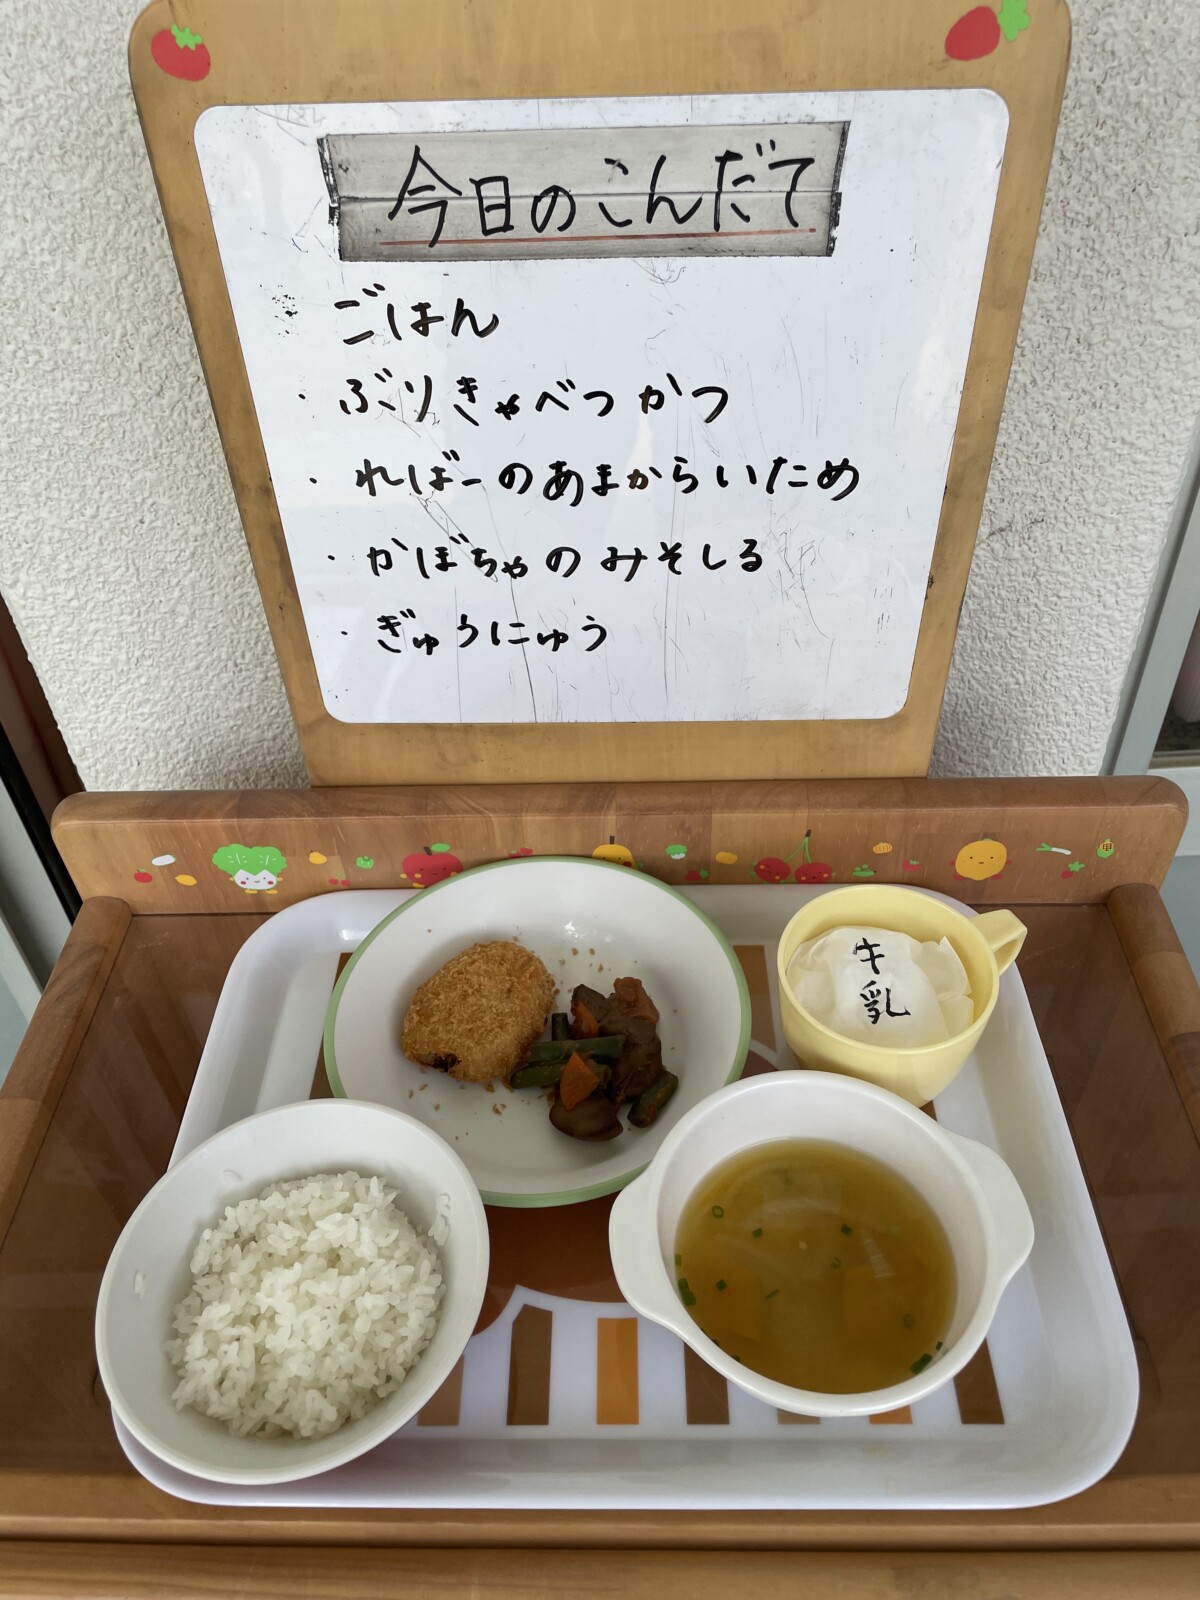 今日のこんだて
ごはん
・ぶりきゃべつかつ
・ればーのあまからいため
・かぼちゃのみそしる
・ぎゅうにゅう
牛乳